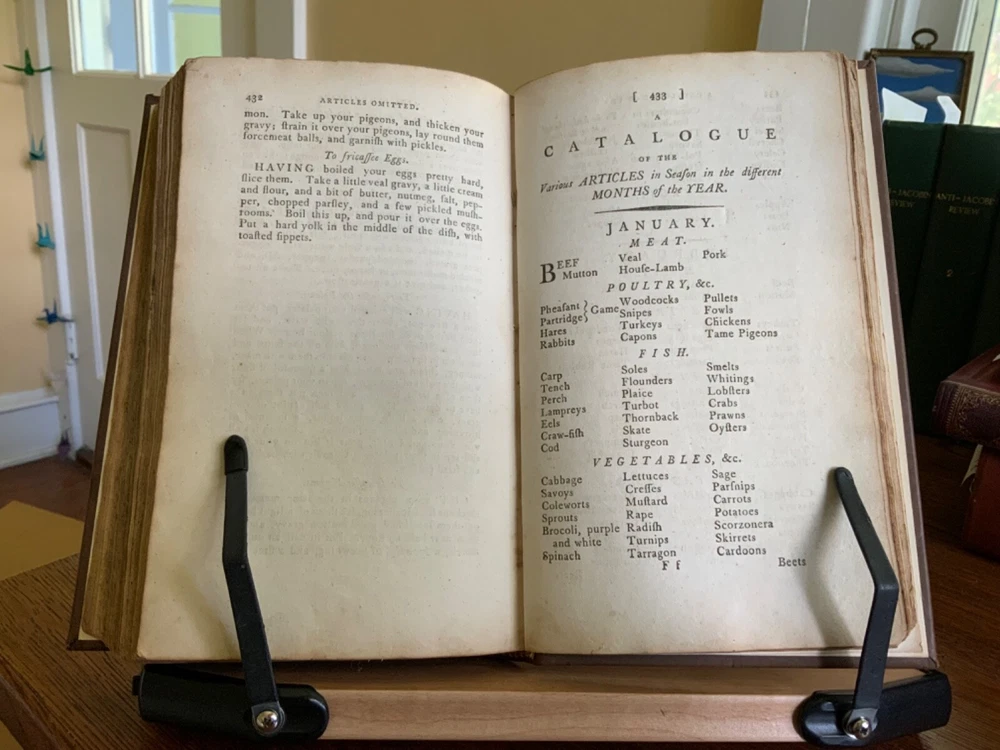 432 ARTICLES OMITTED.
mon. Take up your pigeons, and thicken your
gravy; ſtrain it over your pigeons, lay round them
forcemeat balls, and garniſh with pickles.
To fricaſſee Eggs.
HAVING boiled your eggs pretty hard,
ſlice them. Take a little veal gravy, a little cream
and flour, and a bit of butter, nutmeg, ſalt, pep-
per, chopped parſley, and a few pickled muſh-
rooms. Boil this up, and pour it over the eggs.
Put a hard yolk in the middle of the diſh, with
toaſted ſippets.
[ 433 ]
A
CATALOGUE
OF THE
Various ARTICLES in Seaſon in the different
MONTHS of the YEAR.
JANUARY.
MEAT.
BEEF Veal Pork
Mutton Houſe-Lamb
POULTRY, &c.
Pheaſant } Game Woodcocks Pullets
Partridge Snipes Fowls
Hares Turkeys Chickens
Rabbits Capons Tame Pigeons
FISH.
Carp Soles Smelts
Tench Flounders Whitings
Perch Plaice Lobſters
Lampreys Turbot Crabs
Eels Thornback Prawns
Craw-fiſh Skate Oyſters
Cod Sturgeon
VEGETABLES, &c.
Cabbage Lettuces Sage
Savoys Creſſes Parſnips
Coleworts Muſtard Carrots
Sprouts Rape Potatoes
Brocoli, purple Radiſh Scorzonera
and white Turnips Skirrets
Spinach Tarragon Cardoons
F f Beets
ANTI-JACOBIN
REVIEW
2